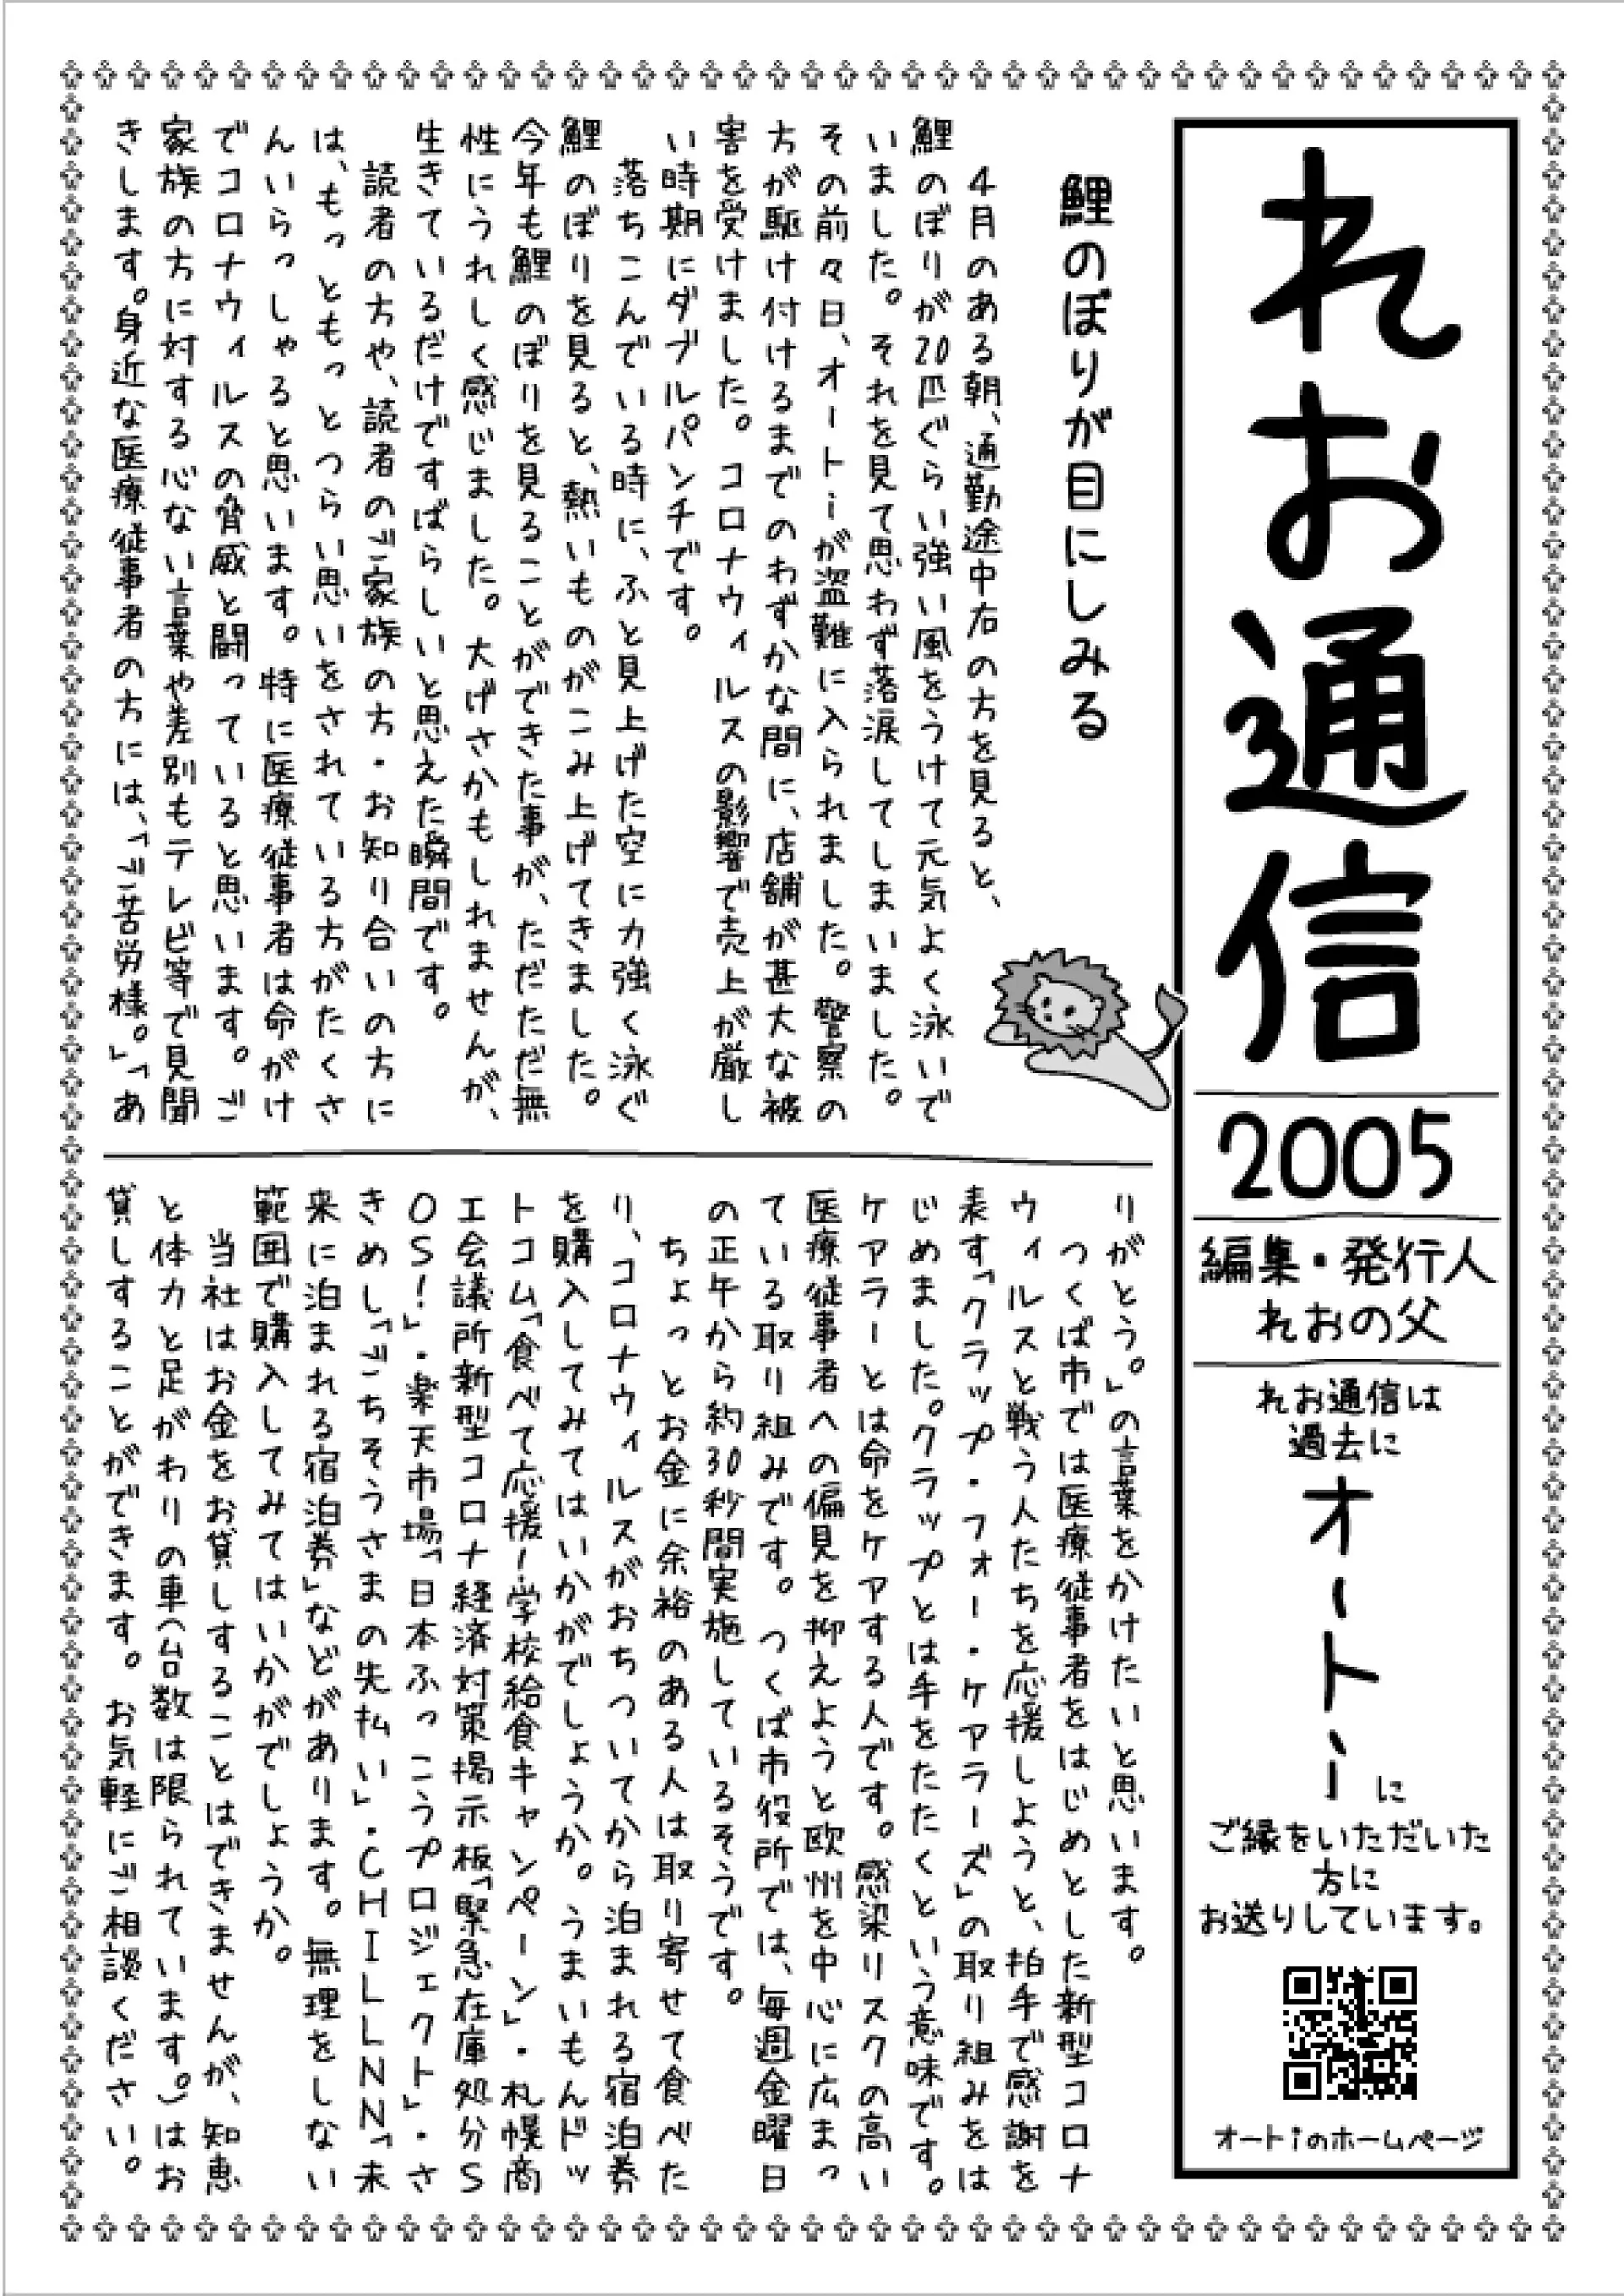 れお通信
2005
編集・発行人
れおの父
れお通信は
過去に
オートi
に
ご縁をいただいた
方に
お送りしています。
オートiのホームページ
鯉のぼりが目にしみる
４月のある朝、通勤途中右の方を見ると、
鯉のぼりが20匹ぐらい強い風をうけて元気よく泳いで
いました。それを見て思わず落涙してしまいました。
その前々日、オートiが盗難に入られました。警察の
方が駆け付けるまでのわずかな間に、店舗が甚大な被
害を受けました。コロナウィルスの影響で売上が厳し
い時期にダブルパンチです。
落ちこんでいる時に、ふと見上げた空に力強く泳ぐ
鯉のぼりを見ると、熱いものがこみ上げてきました。
今年も鯉のぼりを見ることができた事が、ただただ無
性にうれしく感じました。大げさかもしれませんが、
生きているだけですばらしいと思えた瞬間です。
読者の方や、読者のご家族の方・お知り合いの方に
は、もっともっとつらい思いをされている方がたくさ
んいらっしゃると思います。特に医療従事者は命がけ
でコロナウィルスの脅威と闘っていると思います。ご
家族の方に対する心ない言葉や差別もテレビ等で見聞
きします。身近な医療従事者の方には、「ご苦労様。」「あ
りがとう。」の言葉をかけたいと思います。
つくば市では医療従事者をはじめとした新型コロナ
ウィルスと戦う人たちを応援しようと、拍手で感謝を
表す「クラップ・フォー・ケアラーズ」の取り組みをは
じめました。クラップとは手をたたくという意味です。
ケアラーとは命をケアする人です。感染リスクの高い
医療従事者への偏見を抑えようと欧州を中心に広まっ
ている取り組みです。つくば市役所では、毎週金曜日
の正午から約30秒間実施しているそうです。
ちょっとお金に余裕のある人は取り寄せて食べた
り、コロナウィルスがおちついてから泊まれる宿泊券
を購入してみてはいかがでしょうか。うまいもんドッ
トコム「食べて応援！学校給食キャンペーン」・札幌商
工会議所新型コロナ経済対策掲示板「緊急在庫処分Ｓ
ＯＳ！」・楽天市場「日本ふっこうプロジェクト」・さ
きめし「ごちそうさまの先払い」・ＣＨＩＬＬＮＮ「未
来に泊まれる宿泊券」などがあります。無理をしない
範囲で購入してみてはいかがでしょうか。
当社はお金をお貸しすることはできませんが、知恵
と体力と足がわりの車（台数は限られています。）はお
貸しすることができます。お気軽にご相談ください。